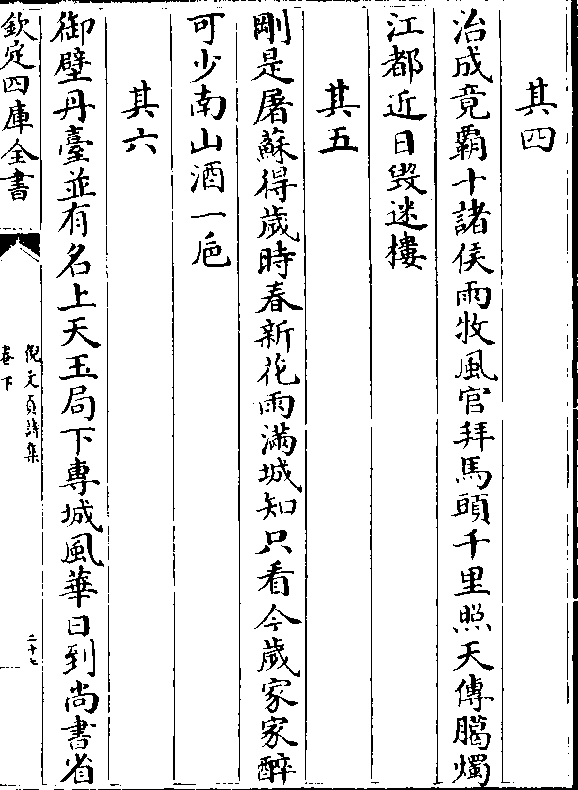 其四
治成竟霸十諸侯雨牧風官拜馬頭千里照天傳臈燭
江都近日毁迷樓
其五
剛是屠蘇得歲時春新花雨滿城知只看今歲家家醉
可少南山酒一巵
其六
御壁丹臺並有名上天玉局下專城風華日到尚書省
欽定四庫全書
倪文貞詩集
卷下
二十七